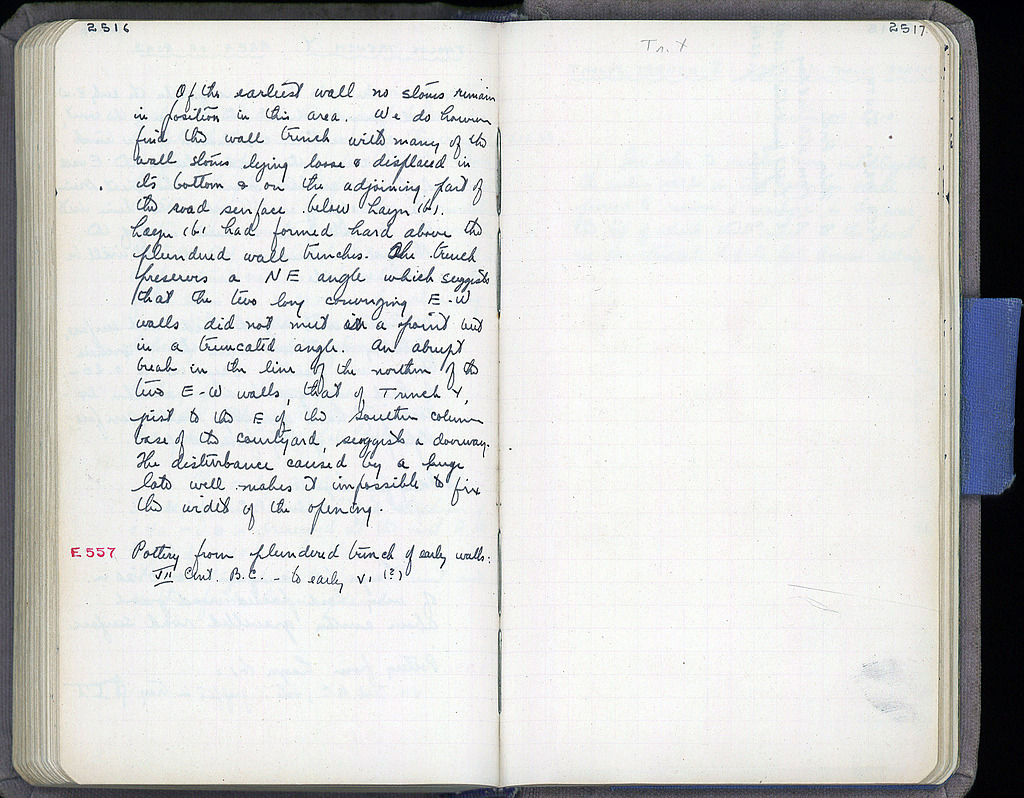 2516
Of the earliest wall no stones remain
in position in this area. We do however
find the wall trench with many of the
wall stones lying loose & displaced in
its bottom & on the adjoining part of
the road surface below Layer (6).
Layer (6) had formed hard above the
plundered wall trenches. The trench
preserves a NE angle which suggests
that the two long converging E-W
walls did not meet in a point but
in a truncated angle. An abrupt
break in the line of the northern of the
two E-W walls, that of Trench Y,
just to the E of the southern column
base of the courtyard, suggests a doorway.
The disturbance caused by a huge
late well makes it impossible to fix
the width of the opening.
E 557 Pottery from plundered trench of early walls:
VII Cent. B.C. - to early VI (?)
2517
Tr. Y